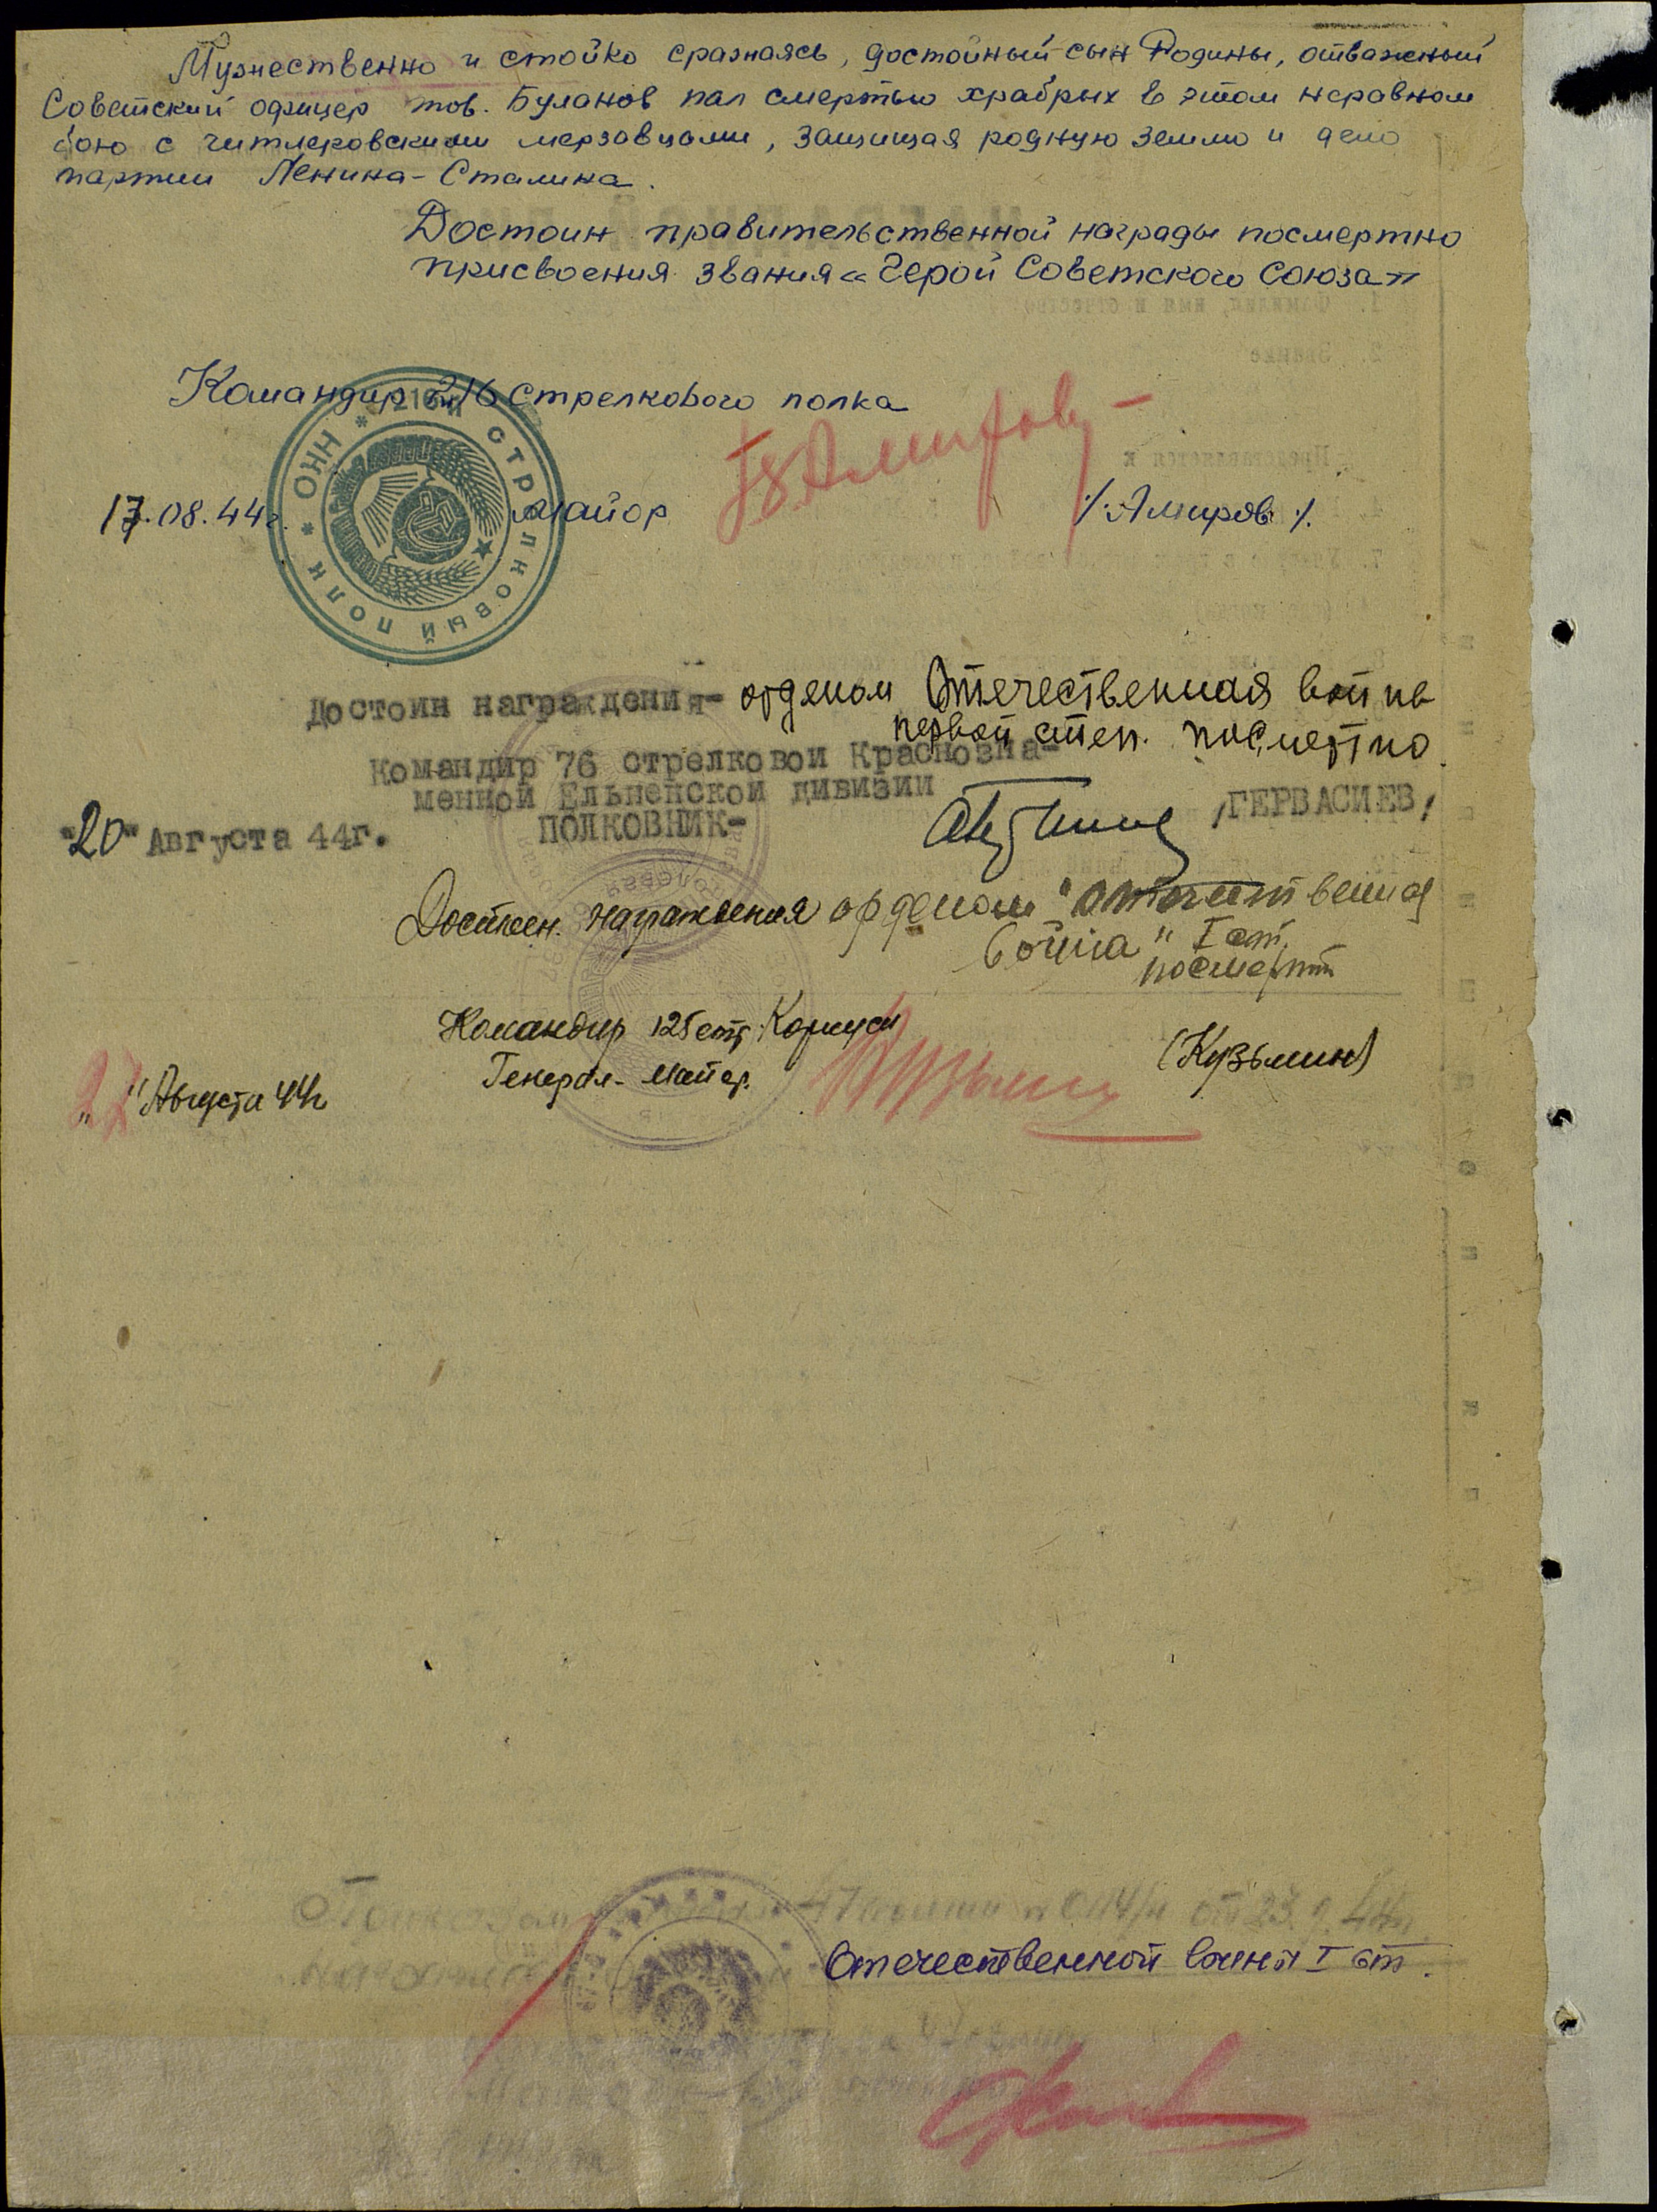 Мужественно и стойко сражаясь, достойный сын Родины, отважный
Советский офицер тов. Буланов пал смертью храбрых в этом неравном
бою с гитлеровскими мерзавцами, защищая родную землю и дело
партии Ленина-Сталина.
Достоин правительственной награды посмертно
присвоения звания «Герой Советского Союза»
Командир 216 Стрелкового полка
* 216й СТРЕЛКОВЫЙ ПОЛК * ОНН
17.08.44г. Майор /Амиров/.
Достоин награждения- орденом Отечественная война
первой степ. посмертно.
Командир 76 стрелковой Краснозна-
менной Ельненской дивизии
ПОЛКОВНИК- /ГЕРВАСИЕВ/
"20" Августа 44г.
Достоен награждения орденом "Отечественная
война" I ст.
посмертн
Командир 125 стр. Корпуса
Генерал-майор. Кузьмин (Кузьмин)
" " Августа 44г
47 армии от 23.9.44г.
Отечественной войны I ст.